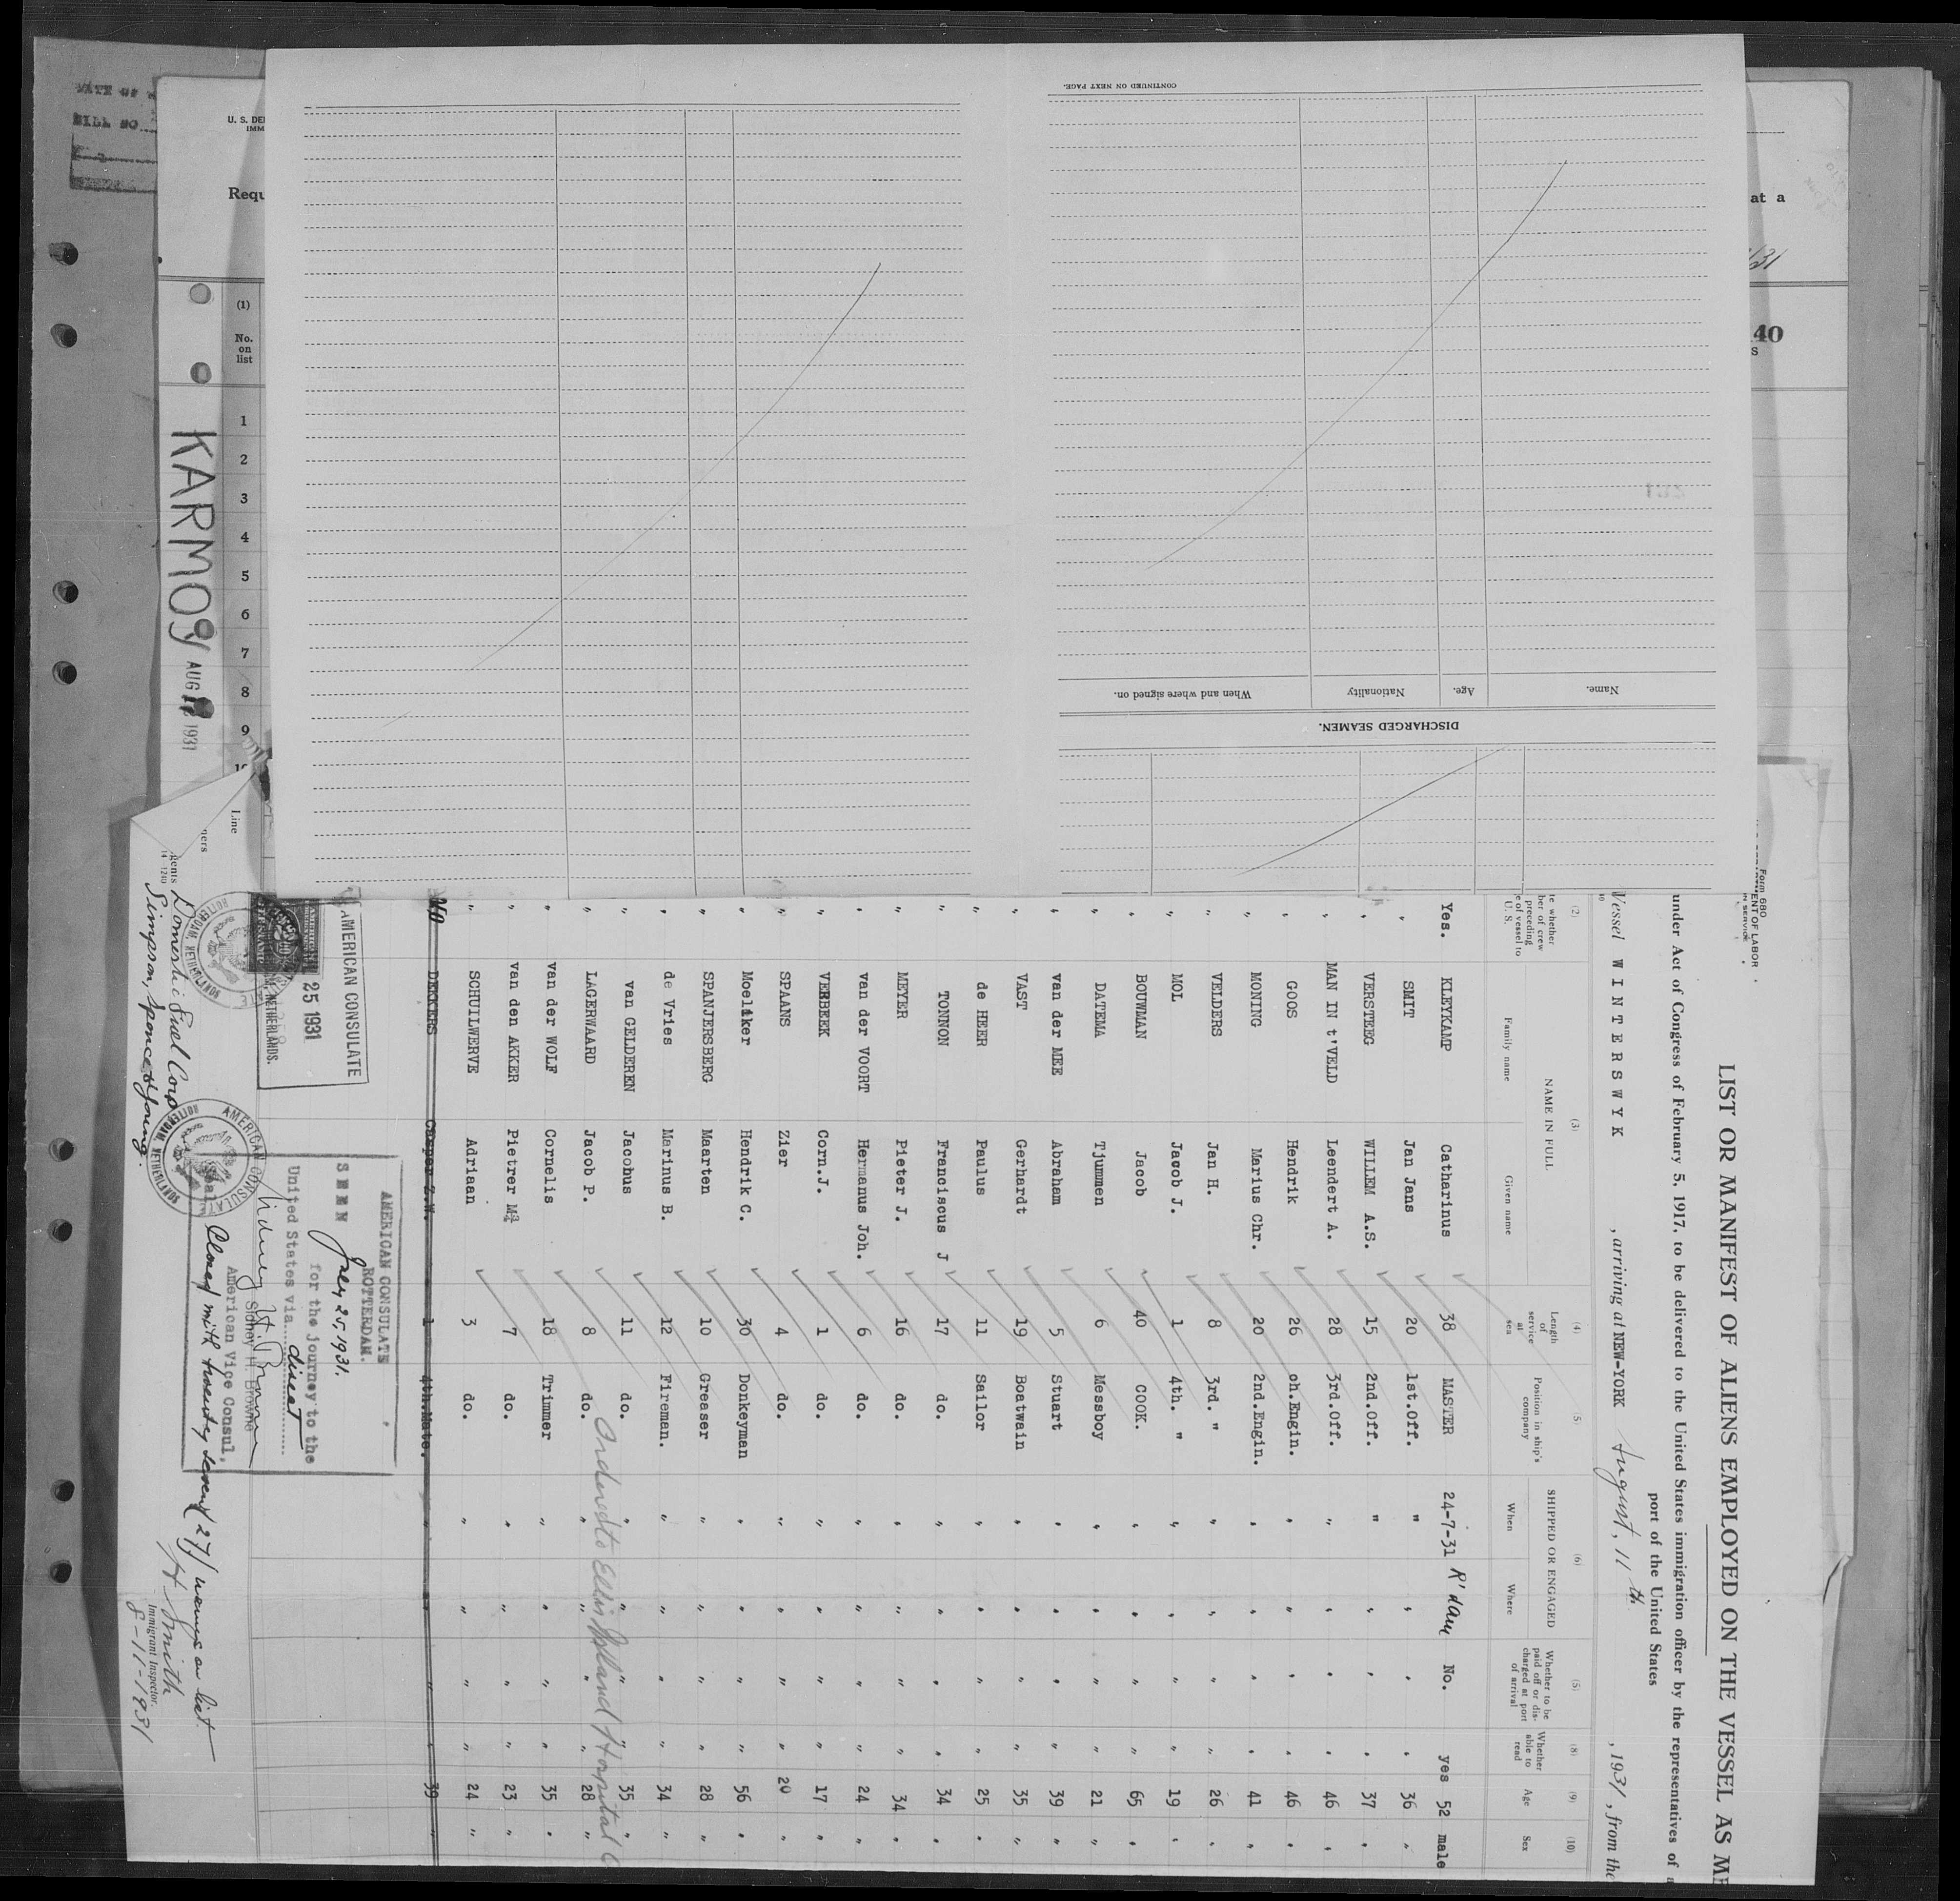 DATE OF
BILL NO
U. S. DE
IMM
Requ
(1)
No.
on
list
1
2
3
4
5
6
7
8
9
KARMOY
AUG 12 1931
at a
40
S
CONTINUED ON NEXT PAGE.
Name.
Age.
Nationality
When and where signed on.
DISCHARGED SEAMEN.
Form 680
ENT OF LABOR
N SERVICE
LIST OR MANIFEST OF ALIENS EMPLOYED ON THE VESSEL AS ME
under Act of Congress of February 5, 1917, to be delivered to the United States immigration officer by the representatives of a
port of the United States
Vessel WINTERSWYK , arriving at NEW-YORK August, 11th , 1931, from the
(2) (3) (4) 5 (6) (5) (8) (9) (10)
te whether
ber of crew
preceding
e of vessel to
U. S.
NAME IN FULL
Family name Given name
Length
of
service
at
sea
Position in ship's
company
SHIPPED OR ENGAGED
When Where
Whether to be
paid off or dis-
charged at port
of arrival
Whether
able to
read
Age
Sex
Yes. KLEYKAMP Catharinus 38 MASTER 24-7-31 R'dam No. yes 52 male
" SMIT Jan Jans 20 1st.Off. " " " " 36 "
" VERSTEEG WILLEM A.S. 15 2nd.Off. " " " " 37 "
" MAN IN t'VELD Leendert A. 28 3rd.Off. " " " " 46 "
" GOOS Hendrik 26 ch.Engin. " " " " 46 "
" MONING Marius Chr. 20 2nd.Engin. " " " " 41 "
" VELDERS Jan H. 8 3rd. " " " " " 26 "
" MOL Jacob J. 1 4th. " " " " " 19 "
" BOUWMAN Jacob 40 COOK. " " " " 65 "
" DATEMA Tjummen 6 Messboy " " " " 21 "
" van der MEE Abraham 5 Stuart " " " " 39 "
" VAST Gerhardt 19 Boatwain " " " " 35 "
" de HEER Paulus 11 Sailor " " " " 25 "
" TONNON Franciscus J 17 do. " " " " 34 "
" MEYER Pieter J. 16 do. " " " " 34 "
" van der VOORT Hermanus Joh. 6 do. " " " " 24 "
" VERBEEK Corn.J. 1 do. " " " " 17 "
" SPAANS Zier 4 do. " " " " 20 "
" Moeliker Hendrik C. 30 Donkeyman " " " " 56 "
" SPANJERSBERG Maarten 10 Greaser " " " " 28 "
" de Vries Marinus B. 12 Fireman. " " " " 34 "
" van GELDEREN Jacobus 11 do. " " " " 35 "
Ordered to Ellis Island Hospital
" LAGERWAARD Jacob P. 8 do. " " " " 28 "
" van der WOLF Cornelis 18 Trimmer " " " " 35 "
" van den AKKER Pietrer 7 do. " " " " 23 "
" SCHUILWERVE Adriaan 3 do. " " " " 24 "
No DEKKERS Casper Z.W. 1 4th.Mate. " " " " 39 "
AMERICAN CONSULATE
25 1931
NETHERLANDS.
AMERICAN CONSULATE
ROTTERDAM.
SEEN July 25, 1931.
for the journey to the
United States via direct
Sidney H. Browne
Sidney H. Browne
American Vice Consul,
Seal
AMERICAN CONSULATE
ROTTERDAM, NETHERLANDS
Closed with twenty seven (27) names on list.
H Smith
Immigrant Inspector.
8-11-1931
Line
ners
gents
14 1240
Domestic Fuel Corp
Simpson, Spence & Young.